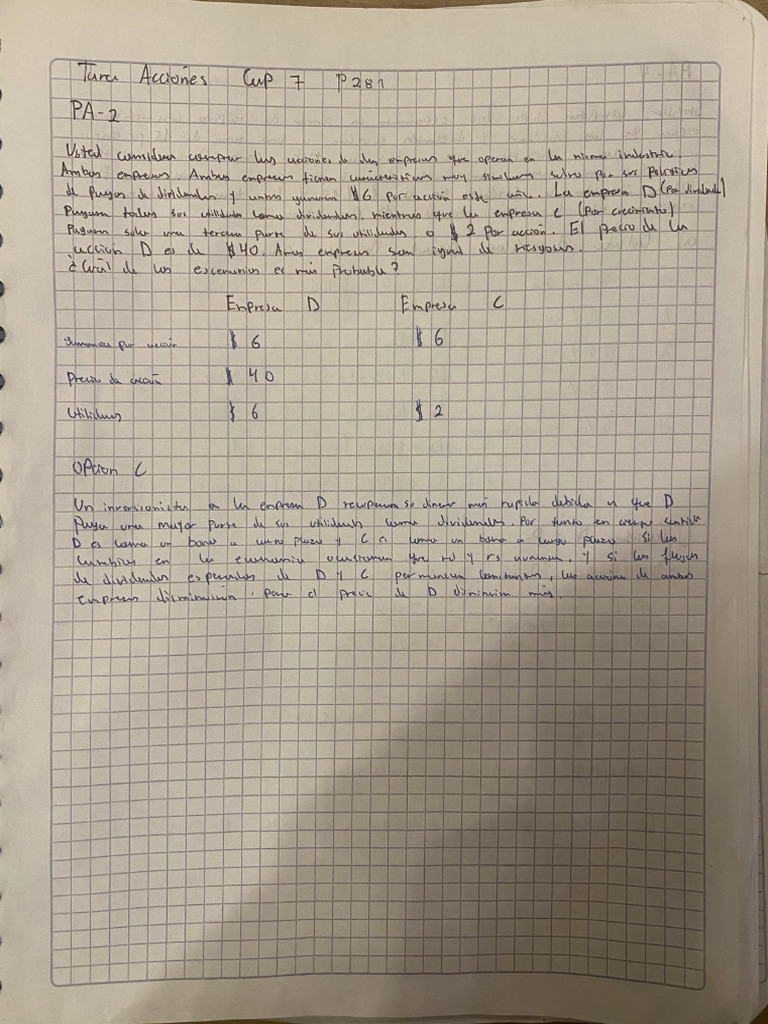 Tarea Acciones Cap 7 P281
PA-2
Usted considera comprar las acciones de dos empresas que operan en la misma industria.
Ambas empresas. Ambas empresas tienen características muy similares salvo por sus políticas
de pagos de dividendos y ambas ganaran $6 por acción este año. La empresa D (Por dividendo)
Pagara todas sus utilidades como dividendos, mientras que la empresa C (Por crecimiento)
Pagara solo una tercera parte de sus utilidades o $2 por acción. El precio de la
acción D es de $40. Ambas empresas son igual de riesgosas.
¿Cuál de los escenarios es más probable?
Empresa D Empresa C
Ganancias por acción $ 6 $ 6
Precio de acción $ 40
Utilidades $ 6 $ 2
Opcion C
Un inversionista en la empresa D recupera su dinero más rapido debido a que D
Paga una mayor parte de sus utilidades como dividendos. Por tanto en cierto sentido
D es como un bono a corto plazo y C es como un bono a largo plazo. Si los
cambios en la economía ocasionan que rd y rs aumenten, y si los flujos
de dividendos esperados de D y C permanecen constantes, las acciones de ambas
empresas disminuiran, pero el precio de D más.